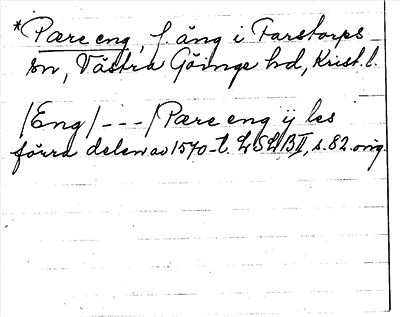 *Pære eng, f. äng i Farstorps
sn, Västra Göinge hd, Krist. l.
/Eng/---/Pære eng ÿ les
förra delen av 1570-t. LSLBII, s. 82. orig.